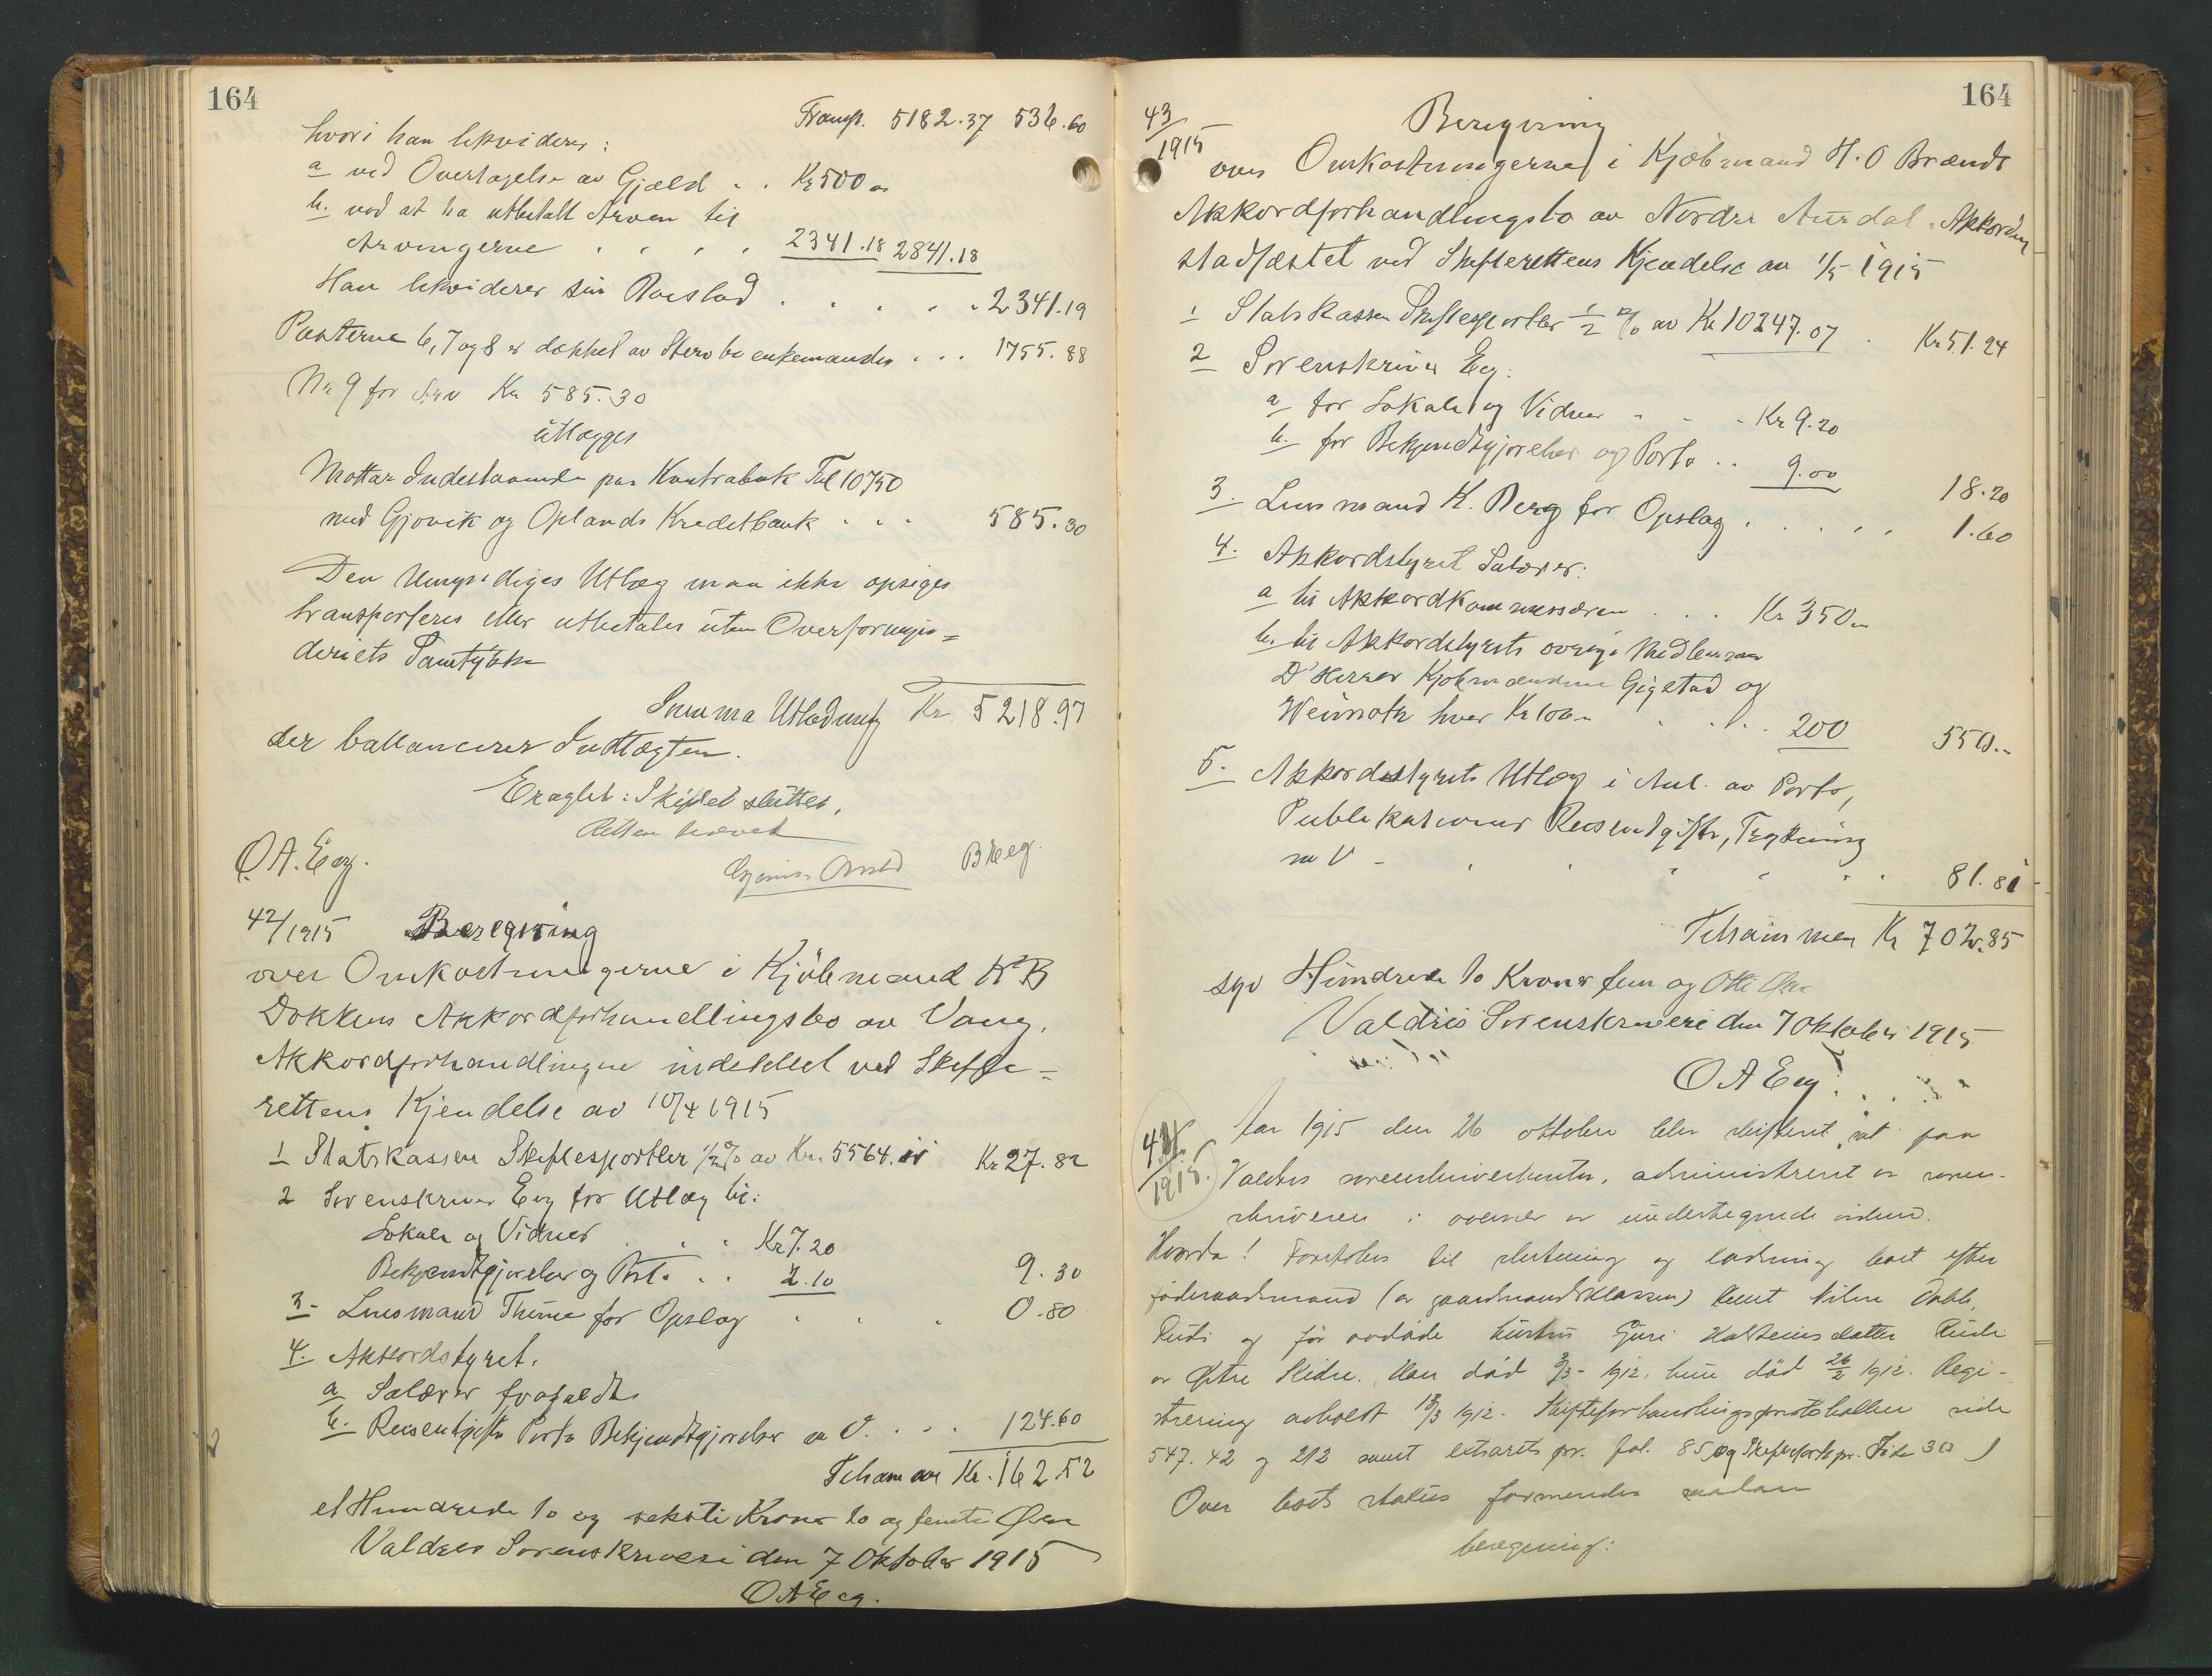 164
Transp. 5182.37 536.60
hvori han likviderer:
a ved Overtagelse av Gjæld . . Kr 500 „
b. ved at ha utbetalt Arven til
Arvingerne . . . . 2341.18 2841.18
Han likviderer sin Boeslod . . . . . 2341.19
Posterne 6, 7 og 8 er dækket av Stervboenkemanden . . . 1755.88
Nr 9 for Arv Kr 585.30
utlægges
Mottar Indestaaende paa Kontrabok Fol 10750
med Gjøvik og Oplands Kreditbank . . . 585.30
Den Umyndiges Utlæg maa ikke opsiges
transporteres eller utbetales uten Overformyn=
deriets Samtykke
Summa Utlodning Kr. 5218.97
der ballancerer Indtægten.
Eragtet: Skiftet sluttet.
Retten hævet
O.A. Eeg. B Eeg.
42/1915 Beregning
over Omkostningerne i Kjöbmand K B
Dokkens Akkordforhandlingsbo av Vang.
Akkordforhandlingene indstillet ved Skifte=
rettens Kjendelse av 10/4 1915
1 Statskassen Skiftesportler 1/2 % av Kr. 5564. Kr 27.82
2 Sorenskriver Eeg for Utlæg til:
Lokale og Vidner . . . Kr 7.20
Bekjendtgjørelser og Porto . . 2.10 9.30
3- Lensmand Thune for Opslag . . . 0.80
4. Akkordstyret.
a Salærer frafaldt
b. Reiseutgifter Porto Bekjendtgjørelser m V. . . . 124.60
Tilsammen Kr. 162.52
et Hundrede to og seksti Kroner to og femti Øre
Valdres Sorenskriveri den 7 Oktober 1915
O A Eeg.
164
43/1915
Beregning
over Omkostningerne i Kjøbmand H. O Brændt
Akkordforhandlingsbo av Nordre Aurdal. Akkorden
stadfæstet ved Skifterettens Kjendelse av 1/5 1915
1 Statskassen Skiftesportler 1/2 % av Kr 10247.07 . Kr 51.24
2 Sorenskriver Eeg:
a for Lokale og Vidner - - - Kr 9.20
b. for Bekjendtgjørelser og Porto . . 9.00 18.20
3- Lensmand K. Berg for Opslag . . . . . 1.60
4. Akkordstyret Salærer:
a til Akkordkommissæren . . . Kr 350 „
b. til Akkordstyrets øvrige Medlemmer
D'Herrer Kjøbmændene Gigstad og
hver Kr 100 „ . . . . 200 550 „
5. Akkordstyrets Utlæg i Anl. av Porto,
Publikationer Reiseutgifter, Trykning
m V - . . . . . . 81.81
Tilsammen Kr 702.85
syv Hundrede to Kroner fem og Otti Øre
Valdres Sorenskriveri den 7 Oktober 1915
O A Eeg.
1915.
Aar 1915 den 26 oktober blev skifteret sat paa
Valdres sorenskriverkontor, administreret av soren-
skriveren i overvær av undertegnede vidner.
Hvorda! Foretokes til slutning og lodning boet efter
föderaadsmand (av gaardmandsklassen) Knut Nilsen
Rudi og för avdöde hustru Guri Halsteinsdatter Rudi
av Østre Slidre. Han död 3/3- 1912, hun död 26/2 1912. Regi-
strering avholdt 13/3 1912. Skifteforhandlingsprotokollen side
547. 42 og 212 samt extrarets pr. fol. 85 og Skiftefortpr. Side 30)
Over boets status formendes saadan
beregning: